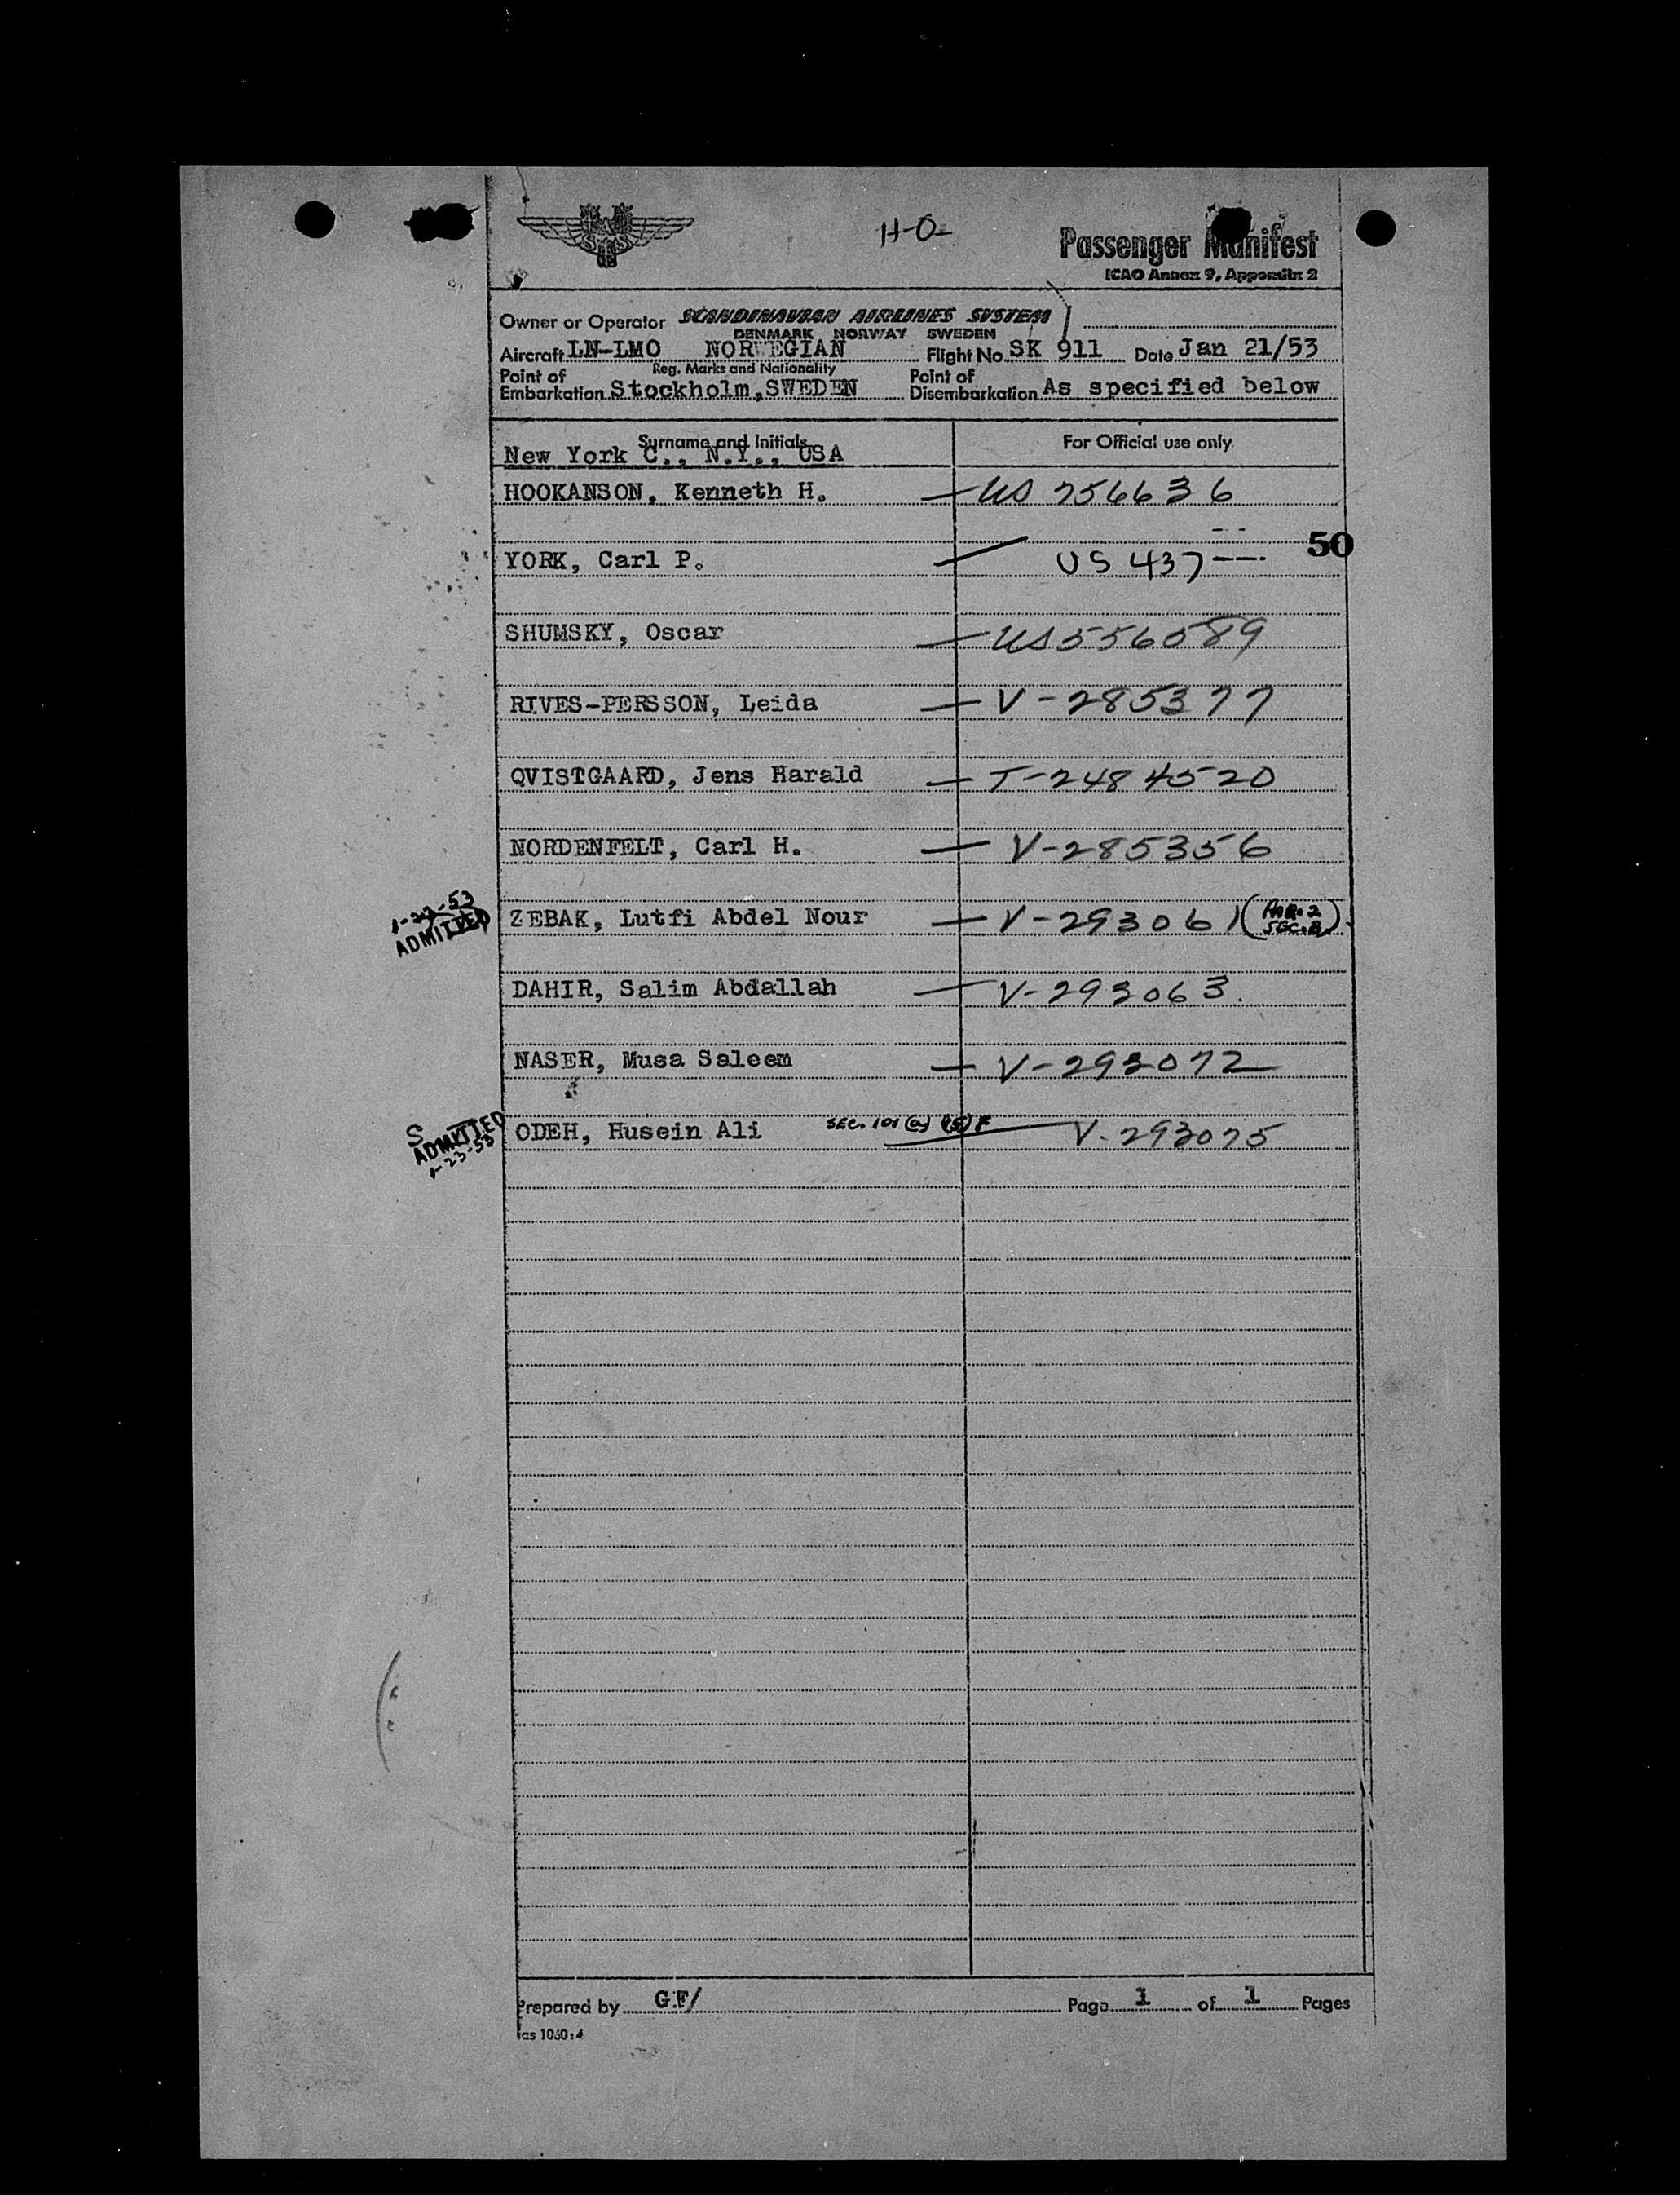 H-O-
Passenger Manifest
ICAO Annex 9, Appendix 2
Owner or Operator SCANDINAVIAN AIRLINES SYSTEM
DENMARK NORWAY SWEDEN
Aircraft LN-LMO NORWEGIAN Flight No. SK 911 Date Jan 21/53
Reg. Marks and Nationality
Point of Embarkation Stockholm, SWEDEN Point of Disembarkation As specified below
Surname and Initials For Official use only
New York C., N.Y., USA
HOOKANSON, Kenneth H. US 256636
50
YORK, Carl P. US 437
SHUMSKY, Oscar US 556589
RIVES-PERSSON, Leida V-285377
QVISTGAARD, Jens Harald T-2484520
NORDENFELT, Carl H. V-285356
1-23-53
ADMITTED
ZEBAK, Lutfi Abdel Nour V-293061 (PAR. 2 SEC. B)
DAHIR, Salim Abdallah V-293063.
NASER, Musa Saleem V-293072
S
ADMITTED
1-23-53
ODEH, Husein Ali SEC. 101 (a) (15) F V-293075
Prepared by GF/ Page 1 of 1 Pages